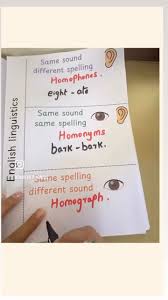 English linguistics
Same sound
different spelling
Homophones.
eight - ate
Same sound,
same spelling
Homonyms
bark - bark.
Same spelling
different sound
Homograph.